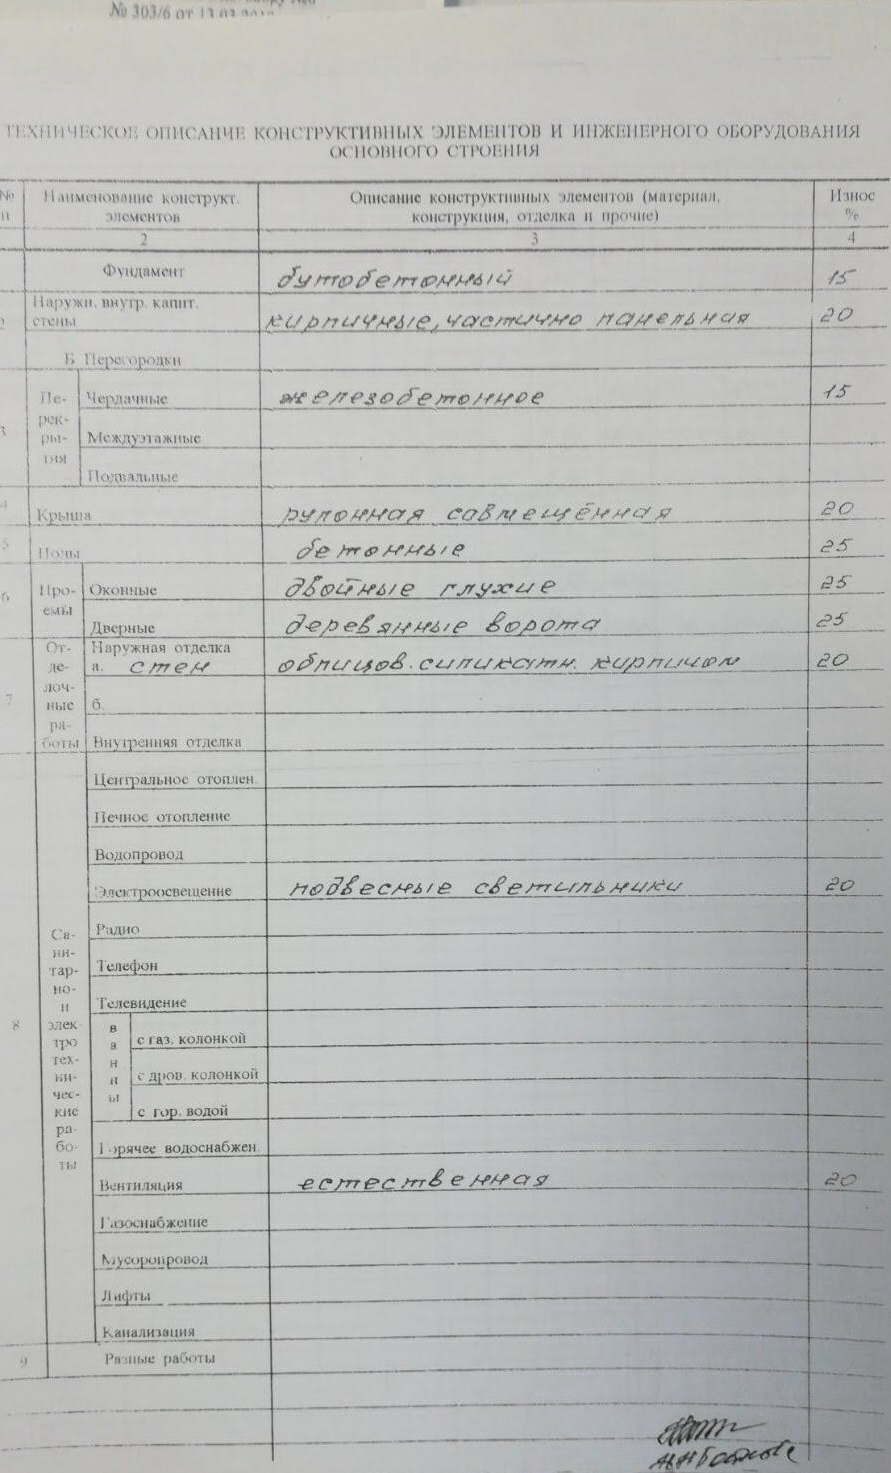 № 303/6 от
ТЕХНИЧЕСКОЕ ОПИСАНИЕ КОНСТРУКТИВНЫХ ЭЛЕМЕНТОВ И ИНЖЕНЕРНОГО ОБОРУДОВАНИЯ
ОСНОВНОГО СТРОЕНИЯ
№ Наименование конструкт. Описание конструктивных элементов (материал, Износ
п элементов конструкция, отделка и прочие) %
2 3 4
Фундамент бутобетонный 15
Наружн. внутр. капит.
стены кирпичные, частично панельная 20
Б Перегородки
3 Пе-рек-ры-тия Чердачные железобетонное 15
Междуэтажные
Подвальные
4 Крыша рулонная совмещённая 20
5 Полы бетонные 25
6 Про-емы Оконные двойные глухие 25
Дверные деревянные ворота 25
7 От-де-лоч-ные ра-боты Наружная отделка
а. стен облицов. силикатн. кирпичом 20
б.
Внутренняя отделка
8 Са-ни-тар-но-и элек тро тех-ни-чес-кие ра-бо-ты Центральное отоплен.
Печное отопление
Водопровод
Электроосвещение подвесные светильники 20
Радио
Телефон
Телевидение
ванны с газ. колонкой
с дров. колонкой
с гор. водой
Горячее водоснабжен.
Вентиляция естественная 20
Газоснабжение
Мусоропровод
Лифты
Канализация
9 Разные работы